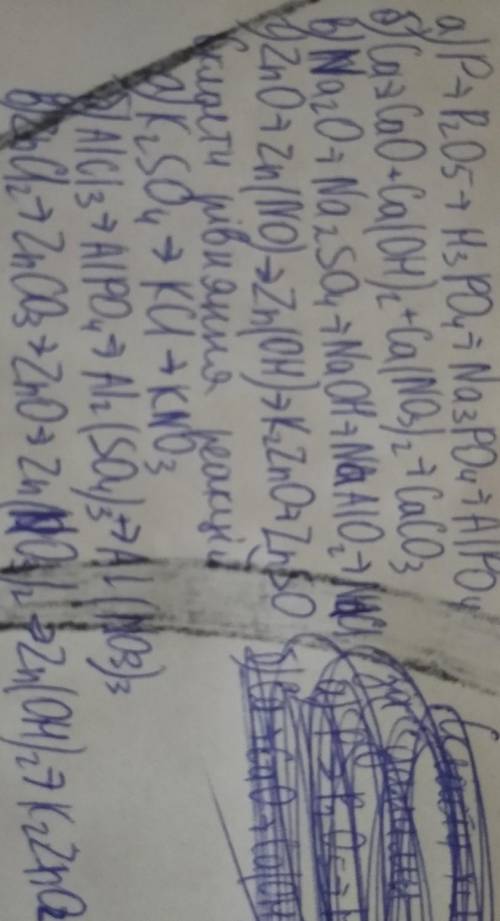 а) P → P2O5 → H3PO4 → Na3PO4 → AlPO4
б) Ca → CaO + Ca(OH)2 + Ca(NO3)2 → CaCO3
в) Na2O → Na2SO4 → NaOH → NaAlO2 → NaCl
г) ZnO → Zn(NO) → Zn(OH) → K2ZnO → ZnSO
рівняння реакцій
а) K2SO4 → KCl → KNO3
б) AlCl3 → AlPO4 → Al2(SO4)3 → Al(NO3)3
в) ZnCl2 → ZnCO3 → ZnO → Zn(NO3)2 → Zn(OH)2 → K2ZnO2